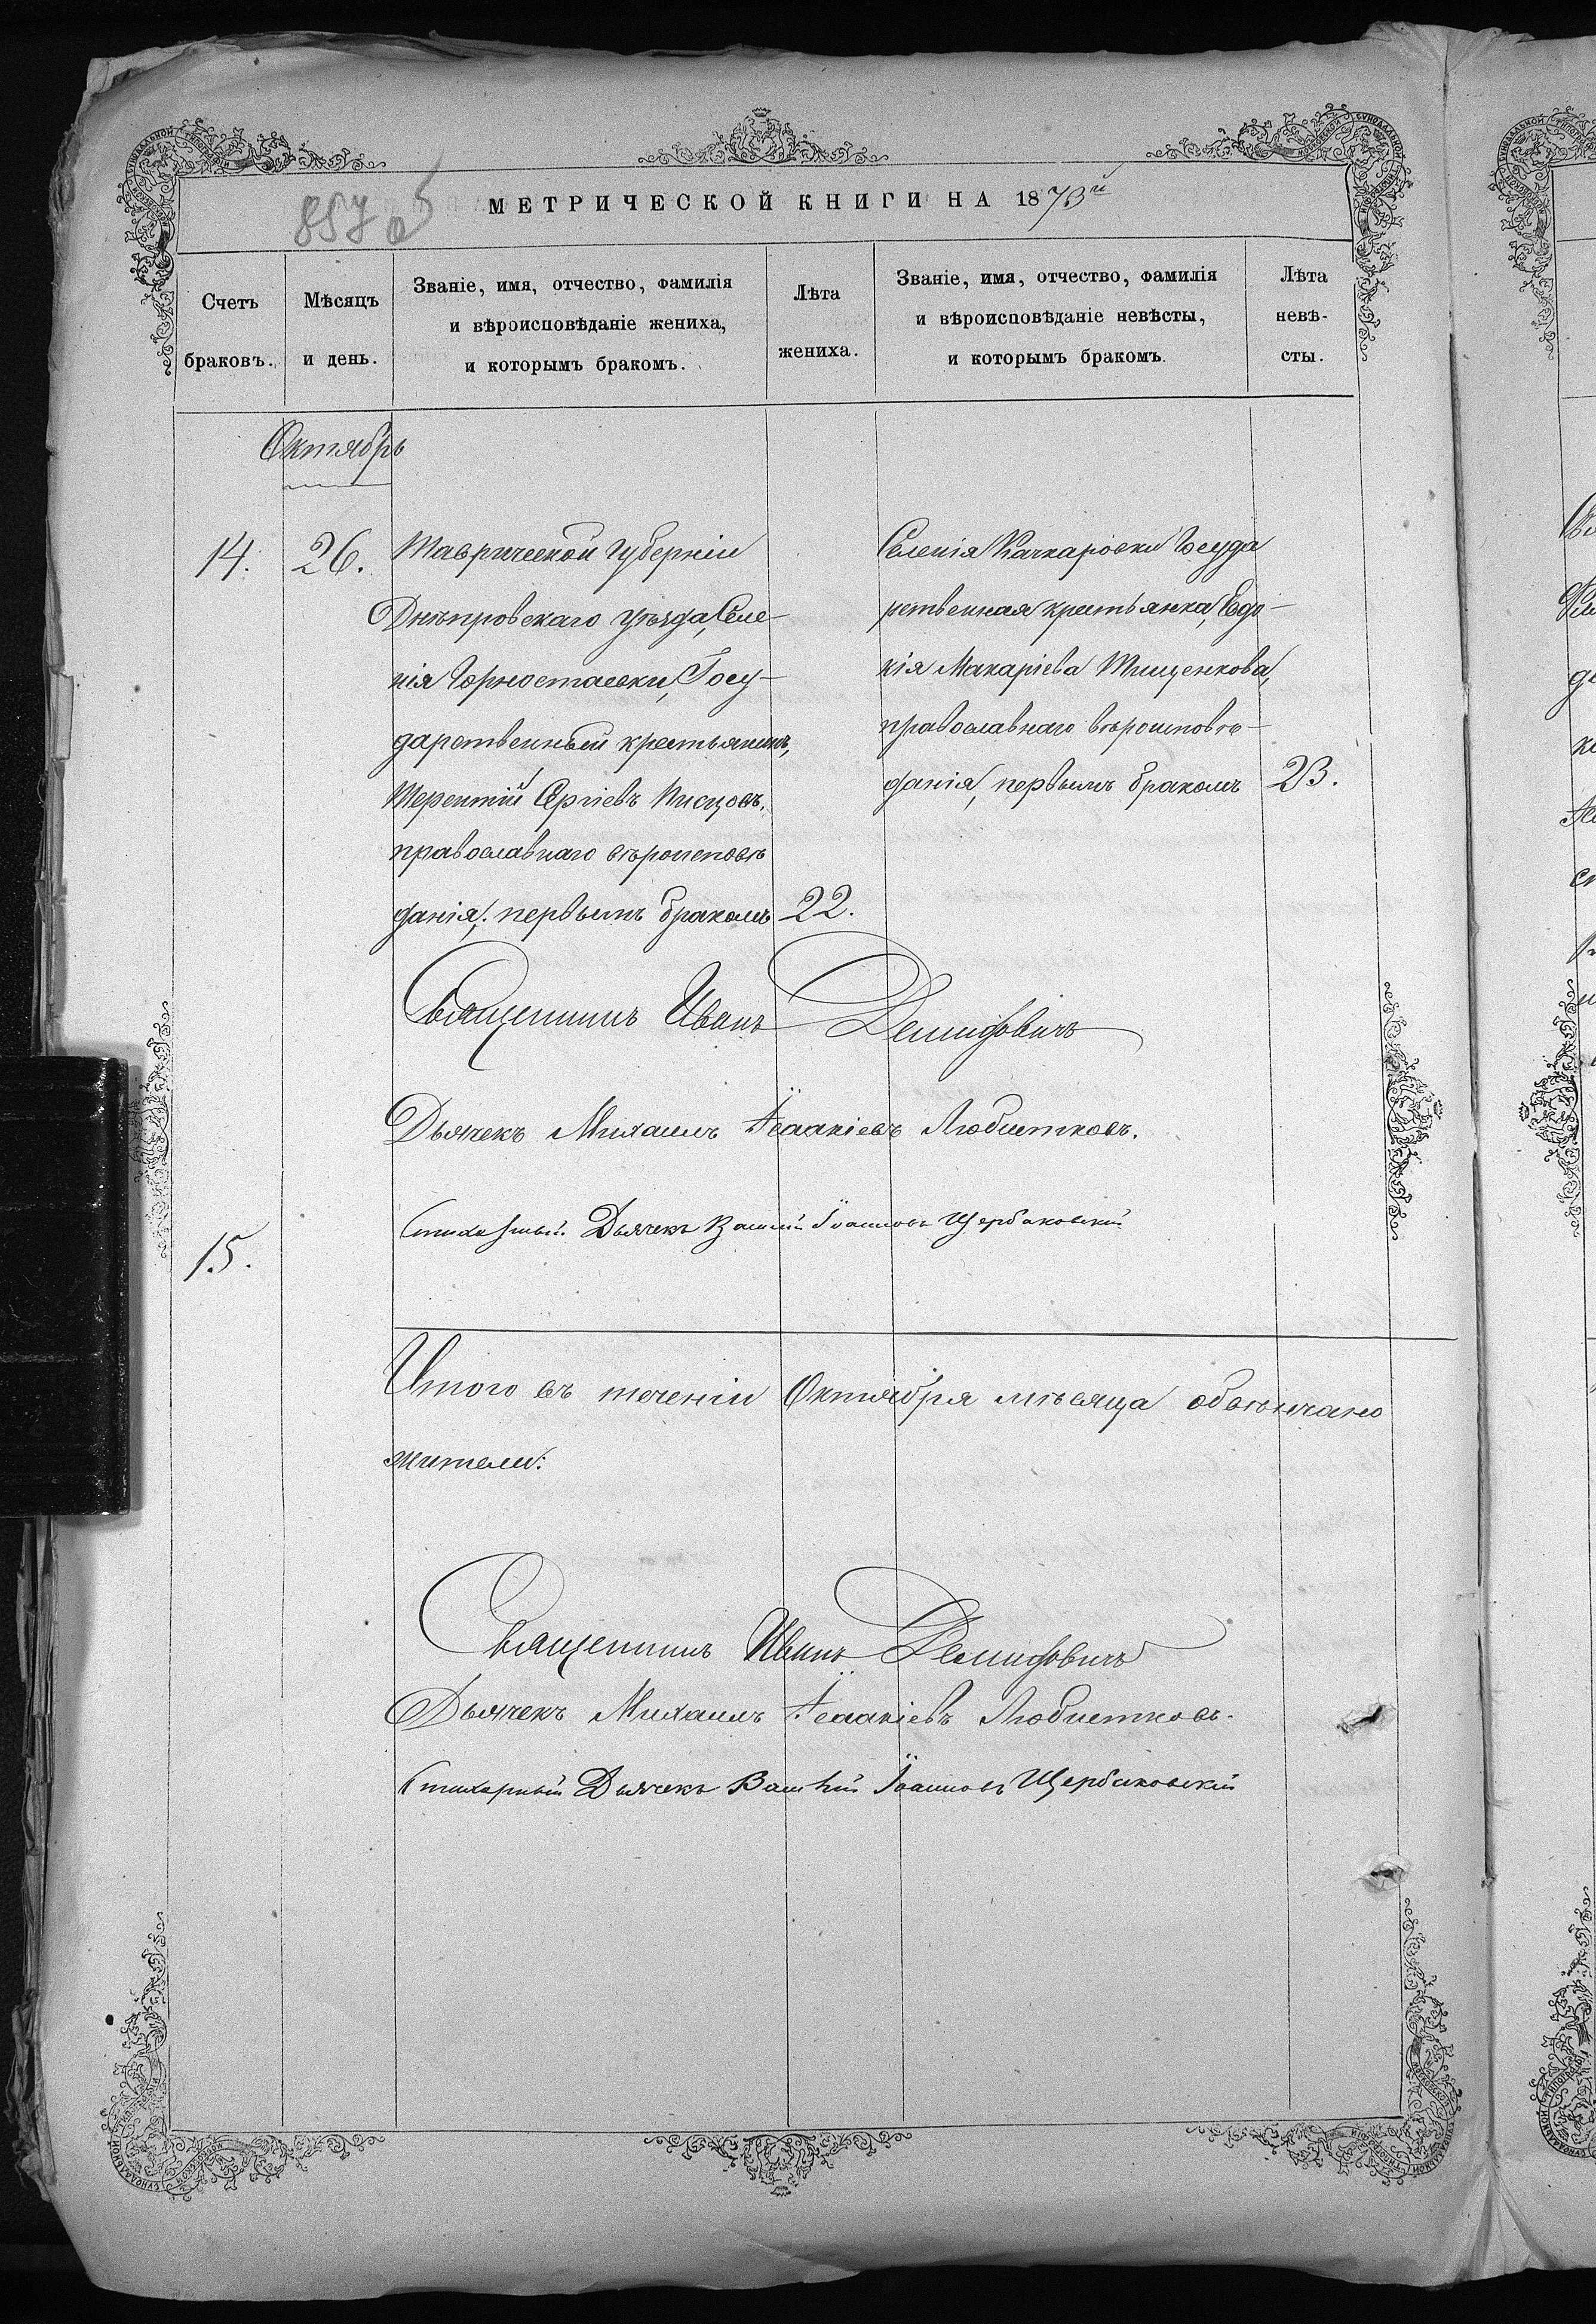 857 об
МЕТРИЧЕСКОЙ КНИГИ НА 1873й
Счетъ браковъ.
Мѣсяцъ и день.
Званіе, имя, отчество, фамилія
и вѣроисповѣданіе жениха,
и которымъ бракомъ.
Лѣта жениха.
Званіе, имя, отчество, фамилія
и вѣроисповѣданіе невѣсты,
и которымъ бракомъ.
Лѣта невѣ-
сты.
Октябрь
14. 26.
Таврической губерніи
Днѣпровскаго уѣзда, Селе-
нія Чорностаевки, Госу-
дарственный крестьянинъ,
Терентій Сергіевъ Писцовъ,
православнаго вѣроисповѣ
данія, первымъ бракомъ 22.
Селенія Качкаровки Госуда
рственная крестьянка, Евдо-
кія Макаріева Тищенкова,
православнаго вѣроисповѣ-
данія, первымъ бракомъ 23.
Священникъ Иванъ Демидовичъ
Дьячекъ Михаилъ Ісаакіевъ Любистковъ.
Стихарный Дьячекъ Василій Іоанновъ Щербаковскій
15.
Итого въ теченіи Октября мѣсяца обвѣнчано
жители:
Священникъ Иванъ Демидовичъ
Дьячекъ Михаилъ Ісаакіевъ Любистковъ.
Стихарный Дьячекъ Василій Іоанновъ Щербаковскій